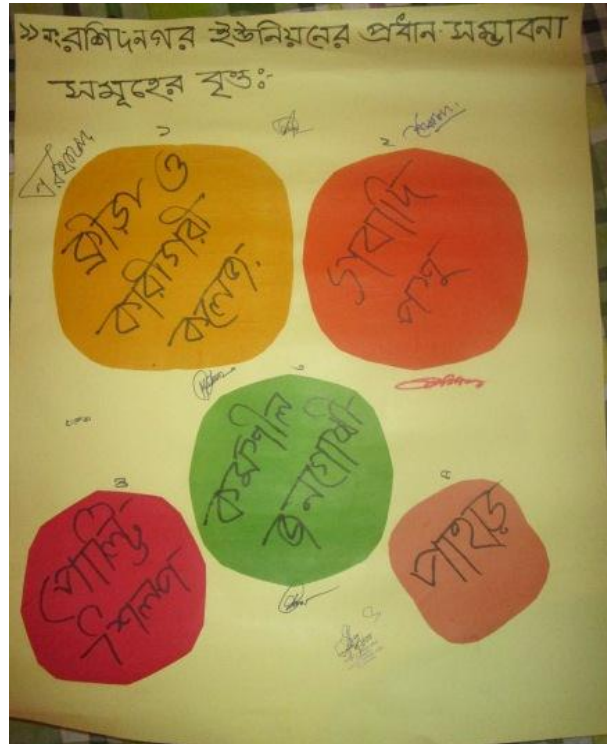 রশিদনগর ইউনিয়নের প্রধান সম্ভাবনা
সমূহের বৃত্ত:-
১
ক্রীড়া ও
কারিগরী
কলেজ
২
গবাদি
পশু
৩
কর্মশীল
জনগোষ্ঠী
৪
পোল্ট্রি
শিল্প
৫
পাহাড়